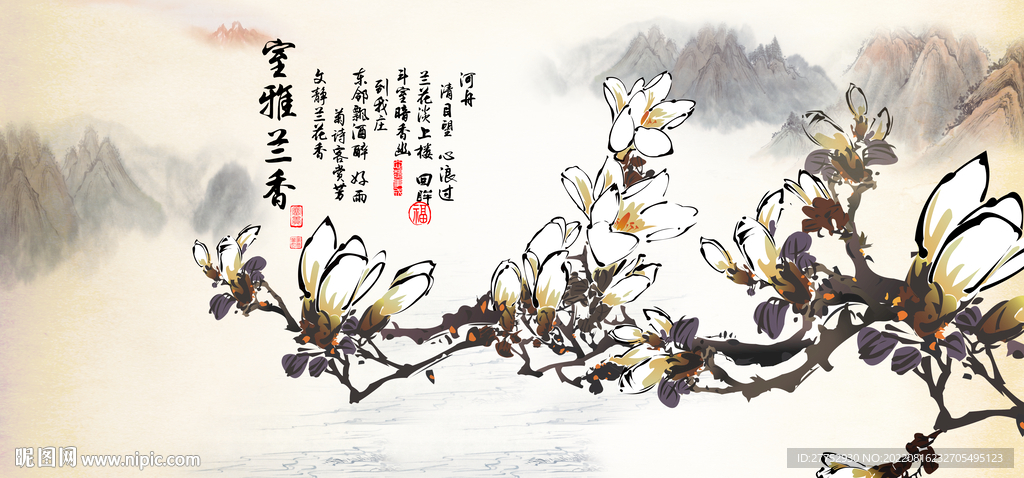 河舟
清目望 心浪过
兰花淡上楼 回眸
福
斗室暗香幽
到我庄
东邻飘酒醉 好雨
菊诗客赏芳
文静兰花香
室雅兰香
昵图网 www.nipic.com
ID:27752930 NO:20220816232705495123